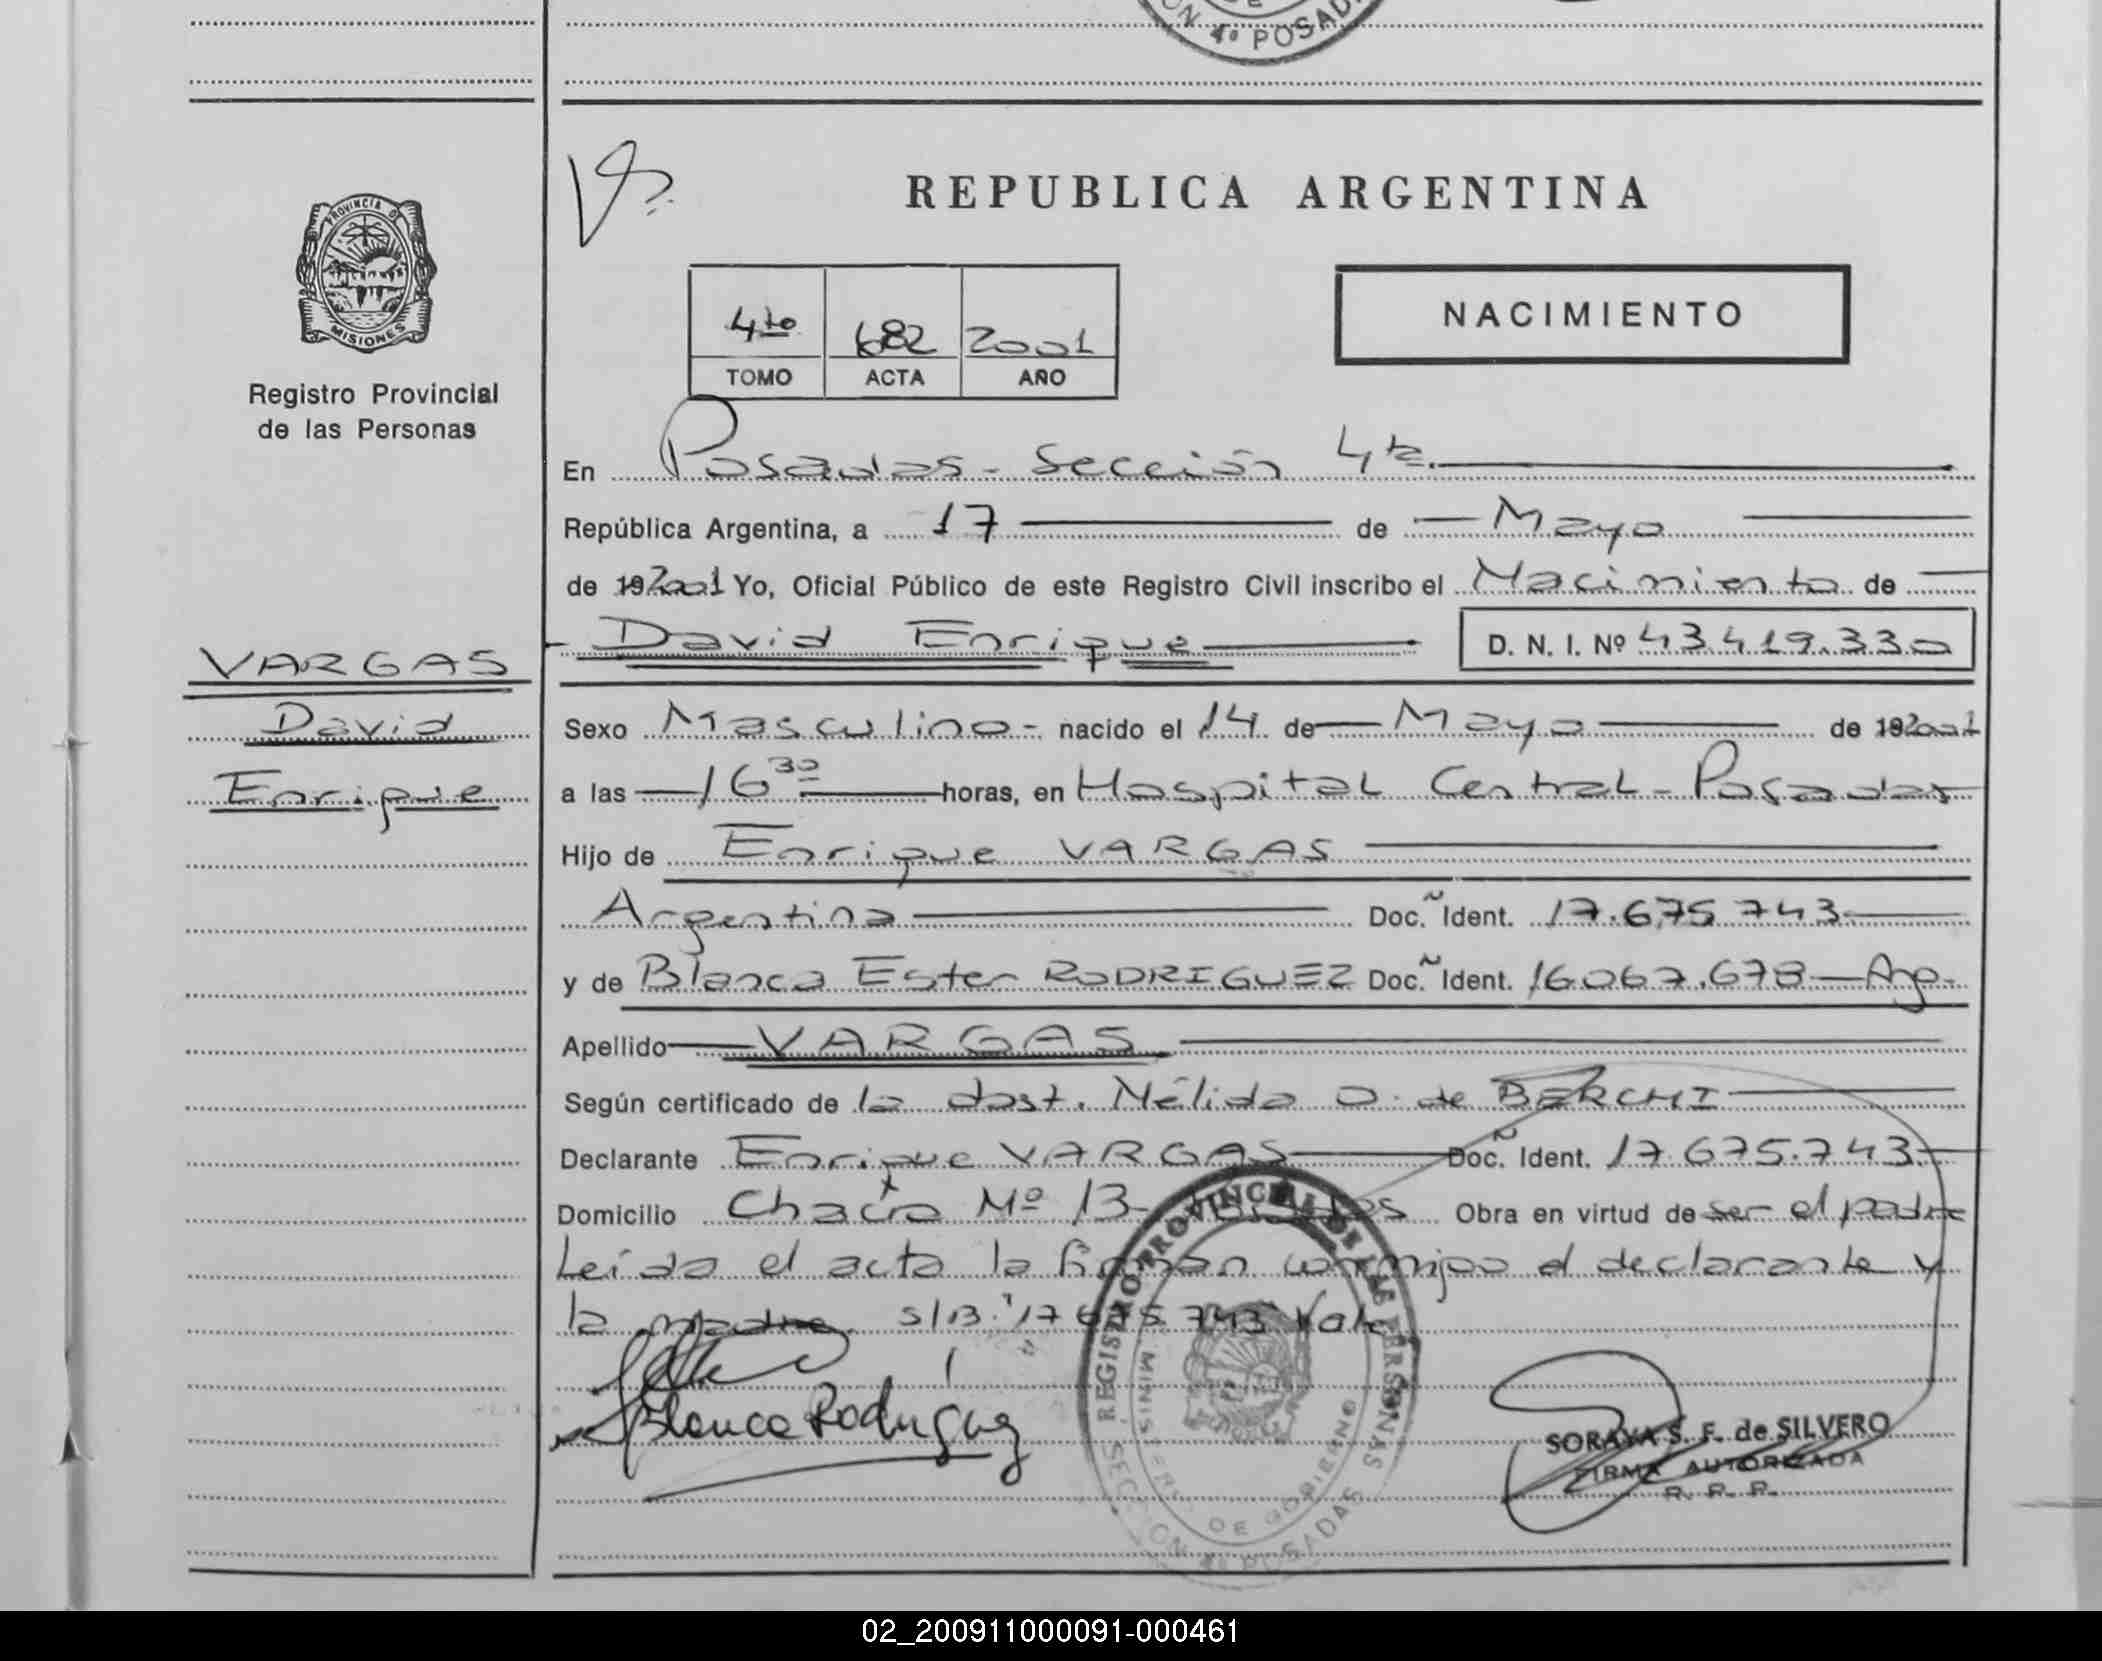 ON 4ª POSADA
REPUBLICA ARGENTINA
PROVINCIA D
MISIONES
Registro Provincial
de las Personas
4to 682 2001
TOMO ACTA AÑO
NACIMIENTO
En Posadas - Sección 4ta.
República Argentina, a 17 de Mayo
de 192001 Yo, Oficial Público de este Registro Civil inscribo el Nacimiento de
David Enrique D. N. I. Nº 43.419.330
VARGAS
David
Enrique
Sexo Masculino - nacido el 14 de Mayo de 192001
a las 16 30 horas, en Hospital Central - Posadas
Hijo de Enrique VARGAS
Argentina Doc. Ident. 17.675.743
y de Blanca Ester RODRIGUEZ Doc. Ident. 16.067.678 - Arg.
Apellido VARGAS
Según certificado de la obst. Nélida O. de BERCHI
Declarante Enrique VARGAS Doc. Ident. 17.675.743.
Domicilio Chacra Nº 13 - Posadas Obra en virtud de ser el padre
Leída el acta la firman conmigo el declarante y
la madre. S/B: 17 675 743 Vale
Blanca Rodriguez
REGISTRO PROVINCIAL DE LAS PERSONAS
MINISTERIO DE GOBIERNO
SECCION 4ª POSADAS
SORAYA S. F. de SILVERO
FIRMA AUTORIZADA
R. P. P.
02_200911000091-000461